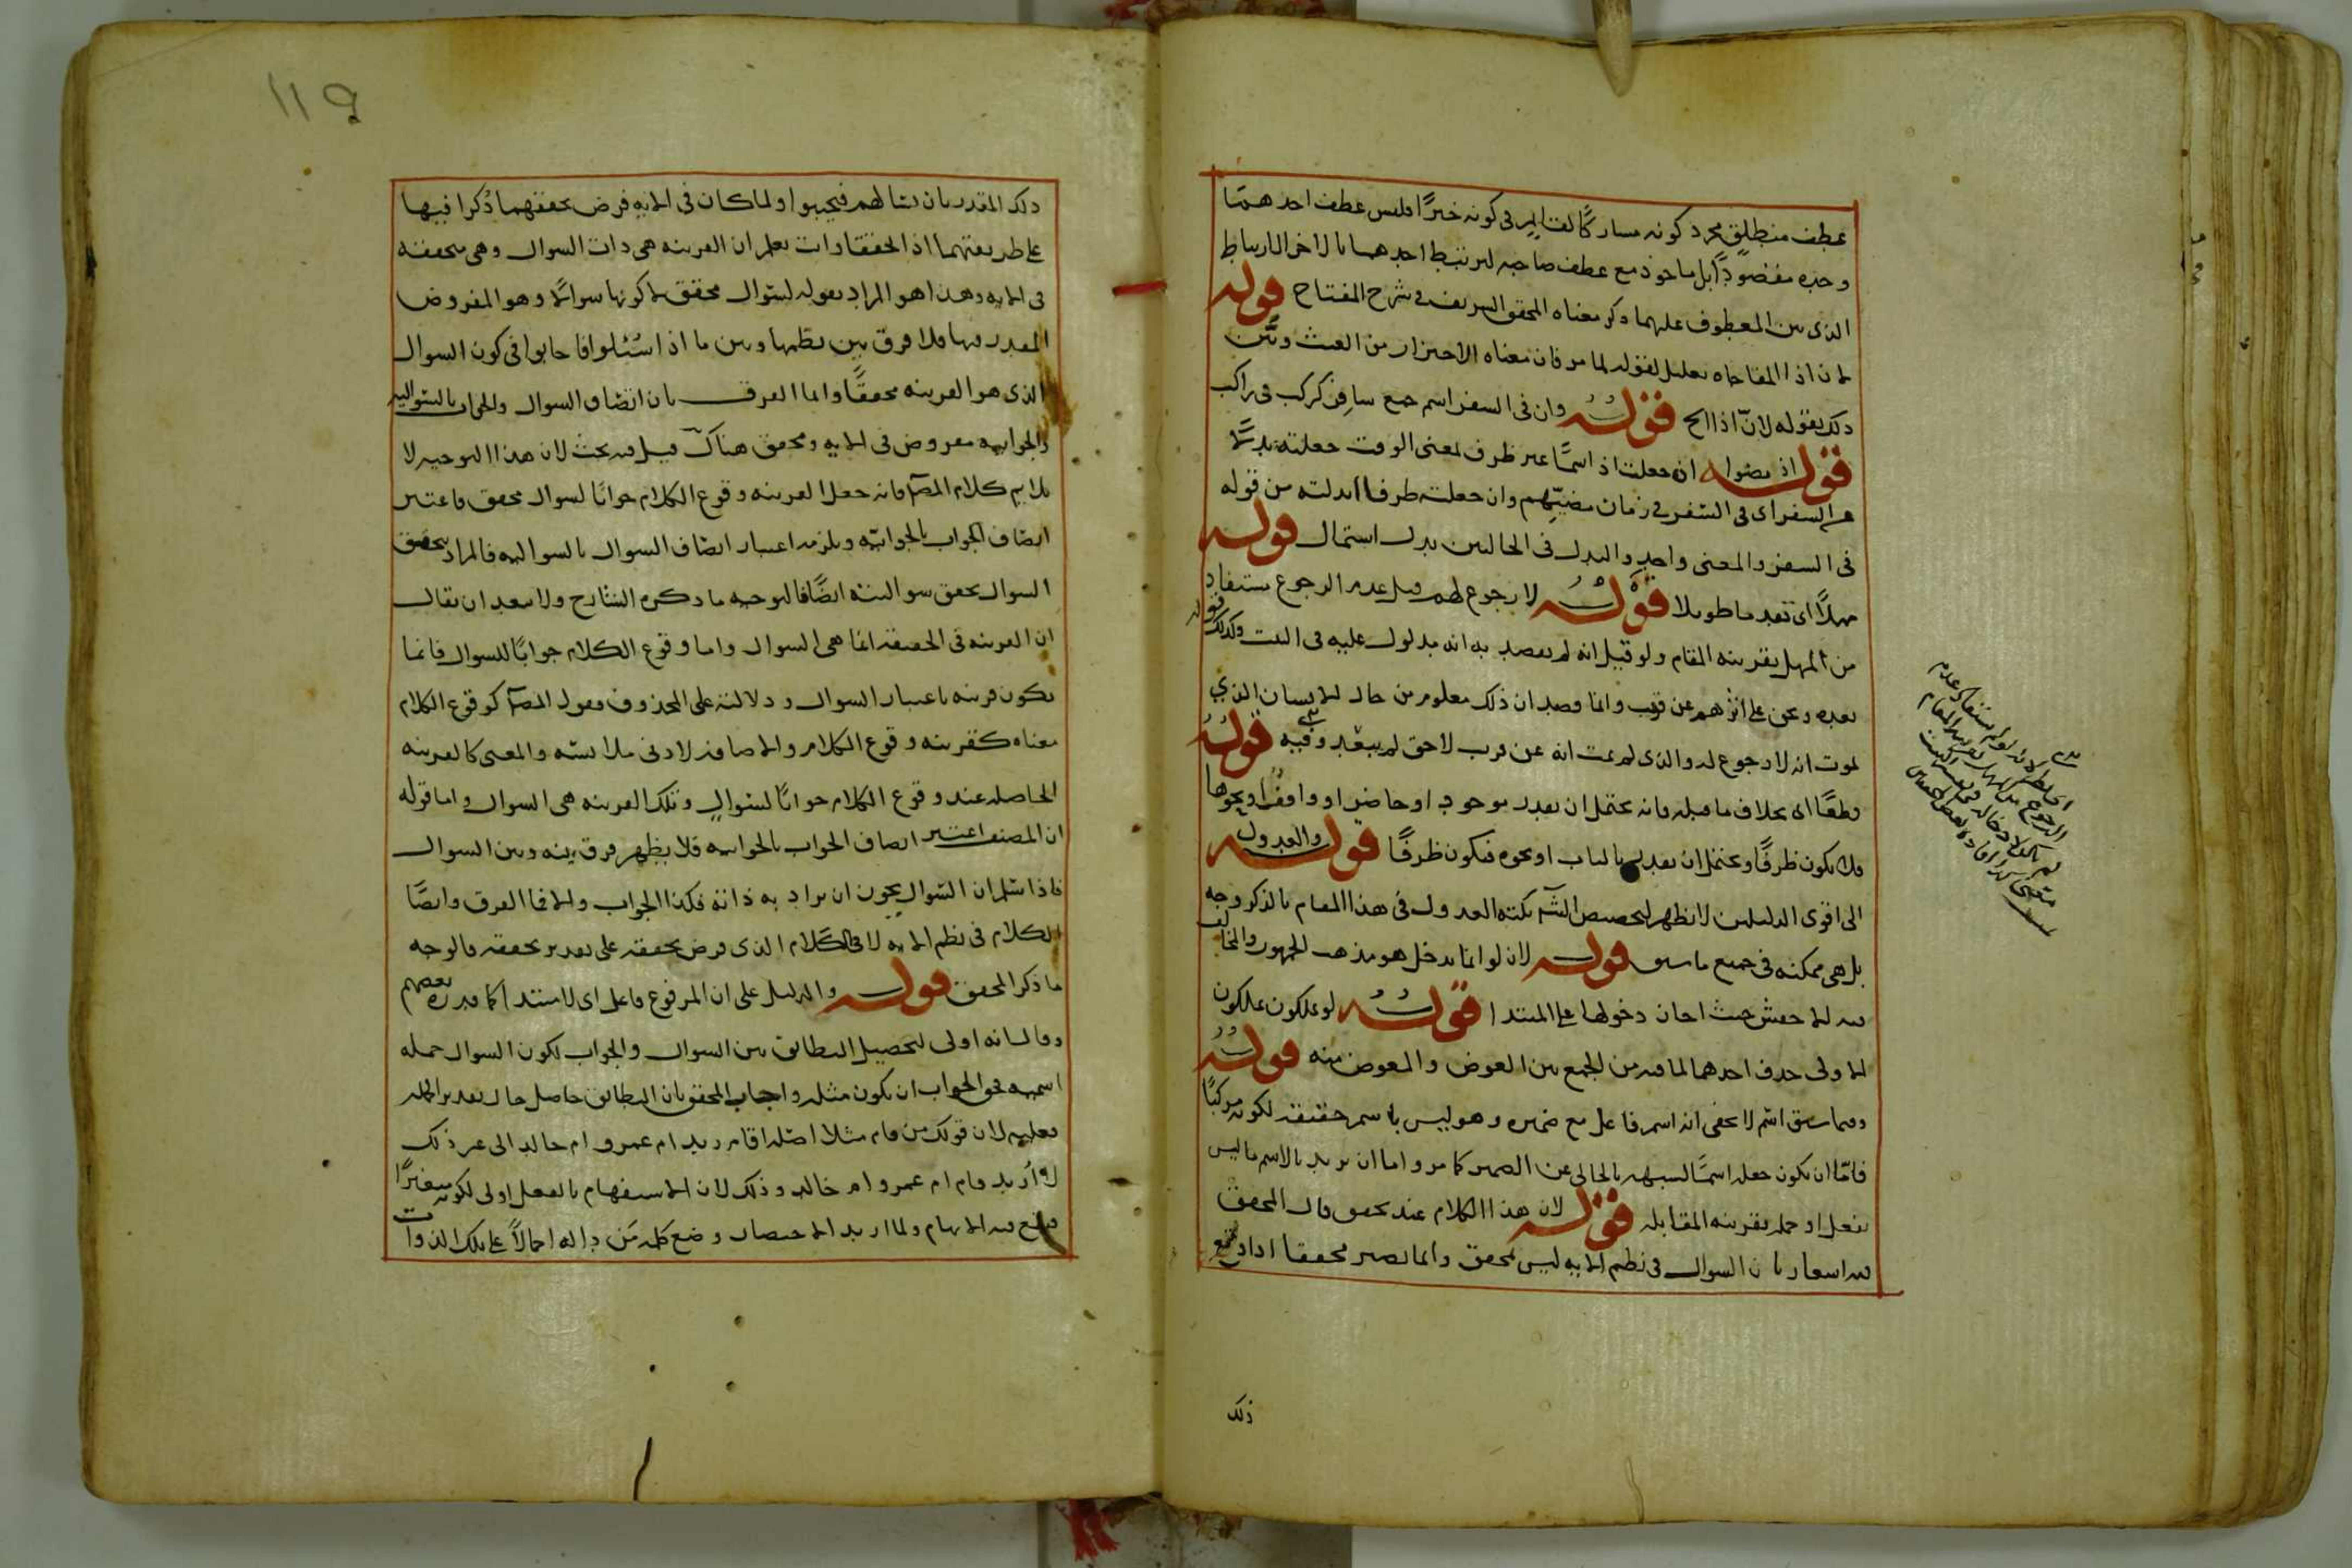 عطف منطلق مجرد كونه مشاركًا لقايم فى كونه خبرًا فليس عطف احدهما
وحده مقصودًا بل ماخوذ مع عطف صاحبه ليرتبط احدهما بالاخر الارتباط
الذى بين المعطوف عليهما ذكر معناه المحقق الشريف فى شرح المفتاح قوله
لان اذا المفاجاه تعليل لقوله لما مر فان معناه الاحتراز من العبث وبين
ذلك بقوله لان اذا الخ قوله وان فى السفر اسم جمع سافر كركب فى راكب
قوله اذ مضوا ان جعلت اذ اسمًا غير ظرف لمعنى الوقت جعلته بدلًا
من السفر اى فى السفر فى زمان مضيّهم وان جعلته ظرفا ابدلته من قوله
فى السفر والمعنى واحد والبدل فى الحالين بدل اشتمال قوله
مهلًا اى بعدما طويلا قوله لا رجوع لهم قيل عدم الرجوع مستفاد
من المهل بقرينه المقام ولو قيل انه لم يقصد به انه مدلول عليه فى البيت وكذلك قوله
بعده ونحن على اثرهم عن قرب وانما قصد ان ذلك معلوم من حال الانسان الذي
يموت انه لا رجوع له والذى لم يمت انه عن قرب لاحق لم يبعد وفيه قوله
وطعًا اى بخلاف ما قبله فانه يحتمل ان يقدر موجود او حاضر او واقف او نحوها
فلا يكون ظرفًا ويحتمل ان يقدر بالباب او نحوه فيكون ظرفًا قوله والعدول
الى اقوى الدليلين لا يظهر لتخصيص الشـ نكته العدول فى هذا المقام بالذكر وجه
بل هى ممكنه فى جميع ما سبق قوله لان لو انما يدخل هو مذهب الجمهور والمخالف
فيه الاخفش حيث اجاز دخولها على المبتدا قوله لو تملكون تملكون
الاولى حذف احدهما لما فيه من الجمع بين العوض والمعوض منه قوله
وفيما سبق اسم لا يخفى انه اسم فاعل مع ضميره وهو ليس باسم حقيقه لكونه مركبًا
فامّا ان يكون جعله اسمًا لشبهه بالخالى عن الضمير كما مر واما ان يريد بالاسم ما ليس
بفعل او جمله بقرينه المقابله قوله لان هذا الكلام عند تحقق قال المحقق
فيه اشعار بان السوال فى نظم الايه ليس بمحقق وانما يصير محققا اذا وقع
ذلك
ذلك المقدر بان يسالهم فيجيبوا ولما كان فى الايه فرض تحققهما ذكرا فيها
على طريقتهما اذا تحققا وانت تعلم ان القرينه هى ذات السوال وهى محققه
فى الايه وهذا هو المراد بقوله لسوال محقق لا كونها سوالًا وهو المفروض
المقدر فيها فلا فرق بين نظمها وبين ما اذا سُئلوا فاجابوا فى كون السوال
الذى هو القرينه محققًا وانما الفرق بان اتصاف السوال والجواب بالسواليه
والجوابيه مفروض فى الايه ومحقق هناك قيل فيه بحث لان هذا التوجيه لا
يلايم كلام المصـ فانه جعل القرينه وقوع الكلام جوابًا لسوال محقق فاعتبر
اتصاف الجواب بالجوابيّه ويلزمه اعتبار اتصاف السوال بالسواليه فالمراد بتحقق
السوال تحقق سواليته ايضًا فالتوجيه ما ذكره الشارح ولا يبعد ان يقال
ان القرينه فى الحقيقه انما هى السوال واما وقوع الكلام جوابًا للسوال فانما
يكون قرينه باعتبار السوال ودلالته على المحذوف فقول المصـ كوقوع الكلام
معناه كقرينه وقوع الكلام والاضافه لادنى ملابسه والمعنى كالقرينه
الحاصله عند وقوع الكلام جوابًا لسوال وتلك القرينه هى السوال واما قوله
ان المصنف اعتبر اتصاف الجواب بالجوابيه فلا يظهر فرق بينه وبين السوال
فاذا سلم ان السوال يجوز ان يراد به ذاته فكذا الجواب والا فما الفرق وايضًا
الكلام فى نظم الايه لا فى الكلام الذى فرض تحققه على تقدير تحققه فالوجه
ما ذكر المحقق قوله والدليل على ان المرفوع فاعل اى لا مبتدا كما قدره بعضهم
وقال انه اولى لتحصيل التطابق بين السوال والجواب لكون السوال جمله
اسميه فحق الجواب ان يكون مثله واجاب المحقق بان التطابق حاصل حال تقدير الجمله
فعليه لان قولك من قام مثلا اصله اقام زيد ام عمرو ام خالد الى غير ذلك
لا ازيد قام ام عمرو ام خالد وذلك لان الاستفهام بالفعل اولى لكونه متغيرًا
فيقع فيه الابهام ولما اريد الاختصار وضع كلمه مَن داله اجمالًا على تلك الذوات